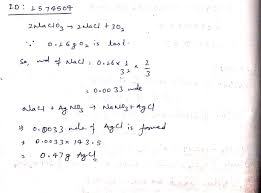 ID: 1574507
2NaClO3 → 2NaCl + 3O2
∵ 0.16g O2 is lost.
So, mol of NaCl: 0.16 × 1/32 × 2/3
= 0.0033 mole
NaCl + AgNO3 → NaNO3 + AgCl
⇒ 0.0033 mole of AgCl is formed
= 0.0033 × 143.5
= 0.47g AgCl